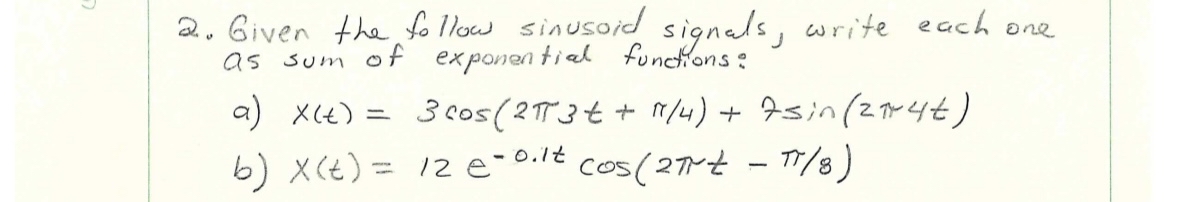 2. Given the follow sinusoid signals, write each one
as sum of exponential functions:
a) x(t) = 3 cos(2π3t + π/4) + 7sin(2π4t)
b) x(t) = 12 e^-0.1t cos(2πt - π/8)